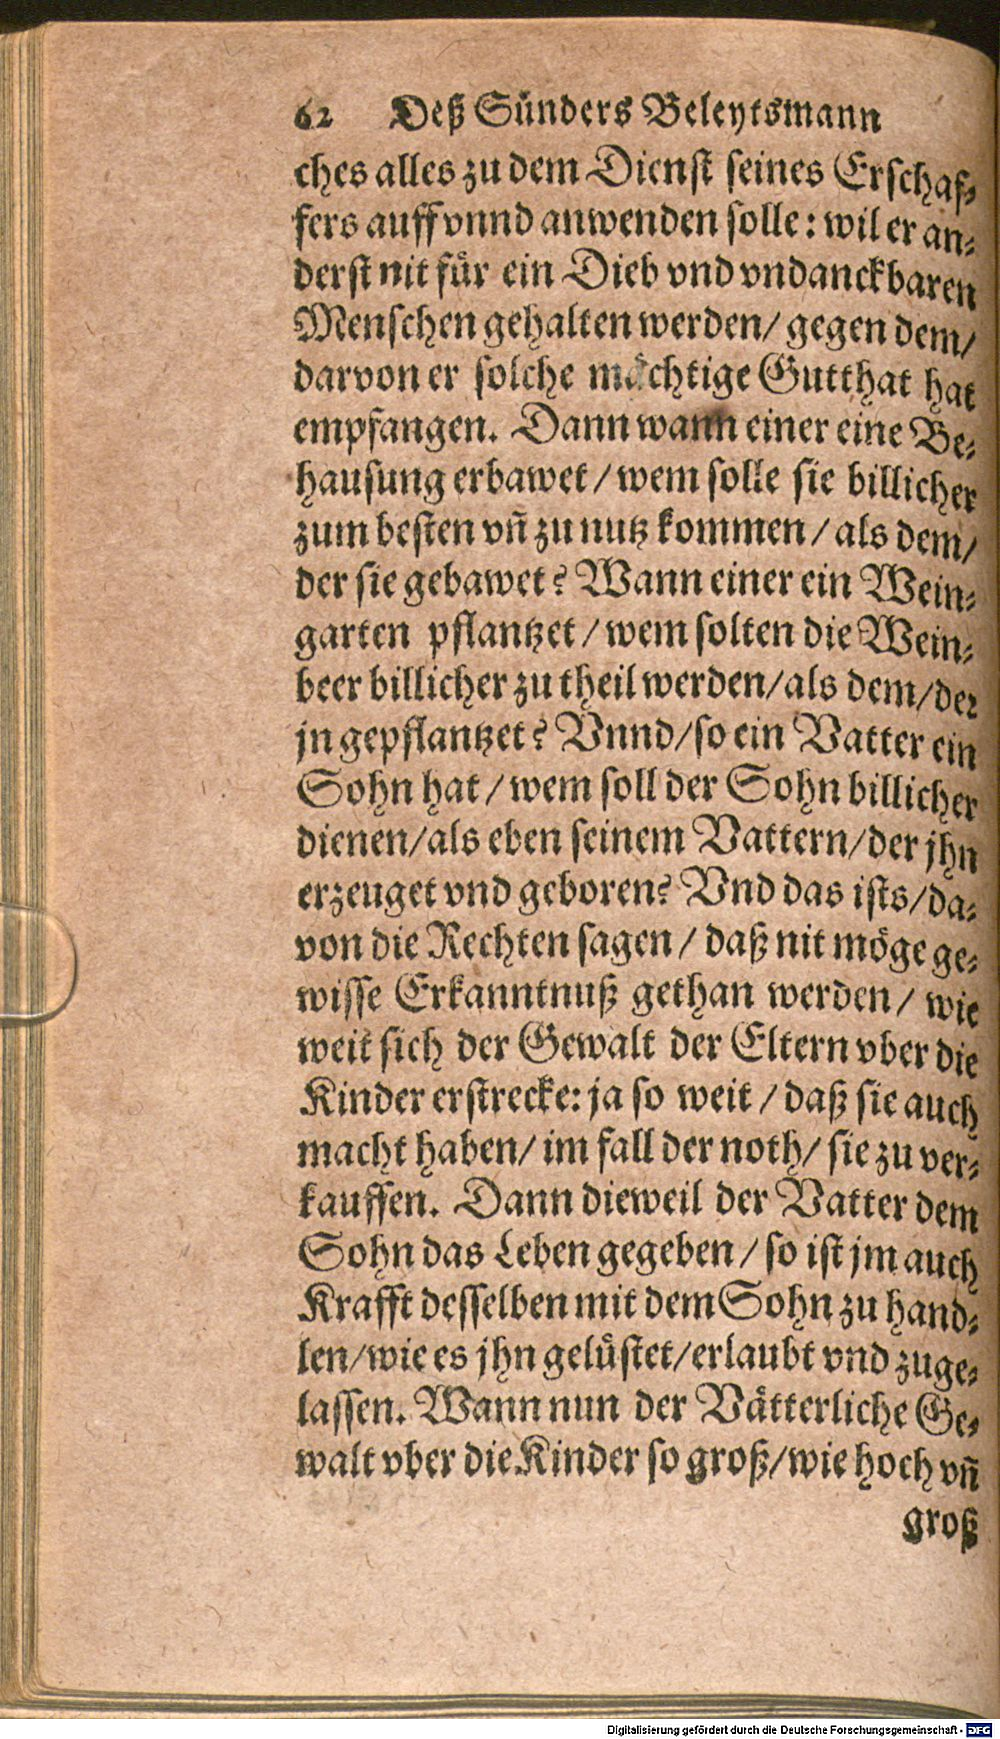 62 Deß Sünders Beleytsmann
ches alles zu dem Dienst seines Erschaf⸗
fers auff vnnd anwenden solle: wil er an⸗
derst nit für ein Dieb vnd vndanckbaren
Menschen gehalten werden/ gegen dem/
darvon er solche mächtige Gutthat hat
empfangen. Dann wann einer eine Be⸗
hausung erbawet/ wem solle sie billicher
zum besten vñ zu nutz kommen/ als dem/
der sie gebawet? Wann einer ein Wein⸗
garten pflantzet/ wem solten die Wein⸗
beer billicher zu theil werden/als dem/der
jn gepflantzet? Vnnd/so ein Vatter ein
Sohn hat/ wem soll der Sohn billicher
dienen/als eben seinem Vattern/der jhn
erzeuget vnd geboren? Vnd das ists/da⸗
von die Rechten sagen/ daß nit möge ge⸗
wisse Erkanntnuß gethan werden/ wie
weit sich der Gewalt der Eltern vber die
Kinder erstrecke: ja so weit/ daß sie auch
macht haben/ im fall der noth/ sie zu ver⸗
kauffen. Dann dieweil der Vatter dem
Sohn das Leben gegeben/ so ist jm auch
Krafft desselben mit dem Sohn zu hand⸗
len/wie es jhn gelüstet/erlaubt vnd zuge⸗
lassen. Wann nun der Vätterliche Ge⸗
walt vber die Kinder so groß/wie hoch vñ
groß
Digitalisierung gefördert durch die Deutsche Forschungsgemeinschaft - DFG